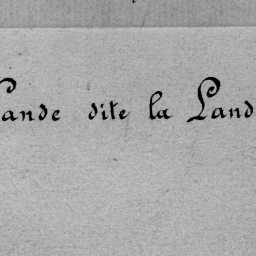 Lande dite la Land